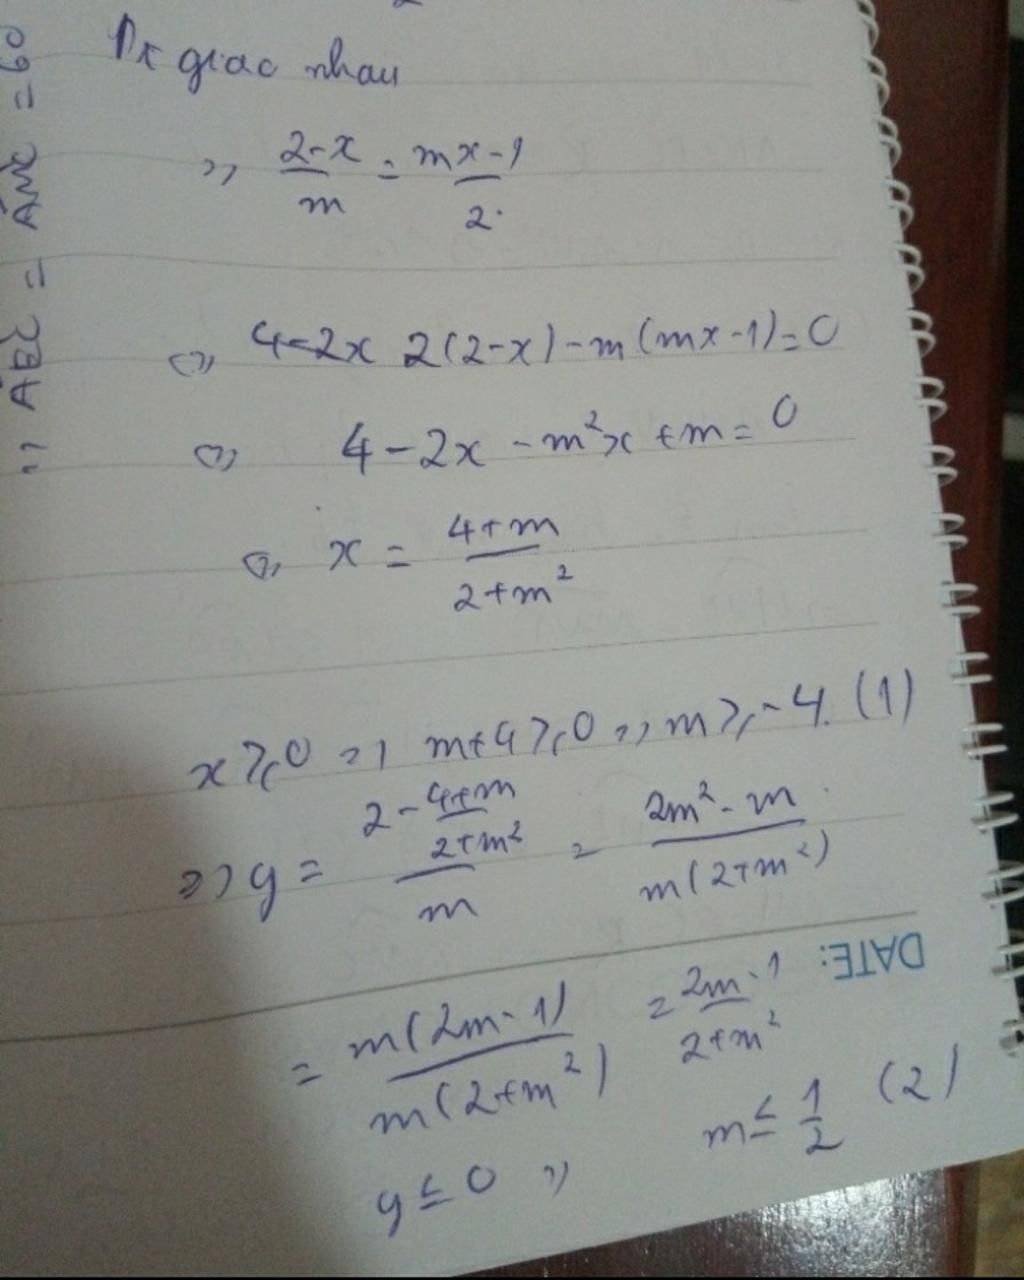 giao nhau
=> (2-x)/m = (mx-1)/2
<=> 4-2x 2(2-x)-m(mx-1)=0
<=> 4-2x-m²x+m=0
<=> x = (4+m)/(2+m²)
x≥0 => m+4≥0 => m≥-4. (1)
=> y = (2-(4+m)/(2+m²))/m = (2m²-m)/(m(2+m²))
DATE:
= m(2m-1)/(m(2+m²)) = (2m-1)/(2+m²)
y≤0 => m≤1/2 (2)
=> ABC = AMC = 60